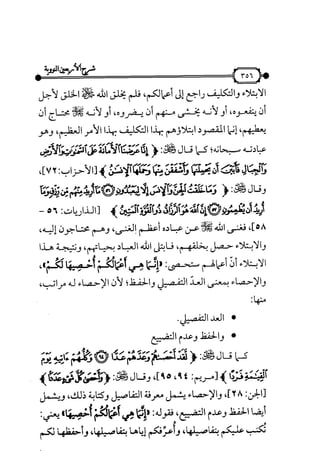 شرح الأربعين النووية
٣٥٦
الابتلاء والتكليف راجع إلى أعمالكم، فلم يخلق الله ﷻ الخلق لأجل
أن ينفعوه، أو لأنه يخشى منهم أن يضروه، أو لأنه ﷻ محتاج أن
يعطيهم، إنما المقصود ابتلاؤهم بهذا التكليف بهذا الأمر العظيم، وهو
عبادته سبحانه؛ كما قال ﷻ: ﴿إِنَّا عَرَضْنَا الْأَمَانَةَ عَلَى السَّمَوَاتِ وَالْأَرْضِ
وَالْجِبَالِ فَأَبَيْنَ أَن يَحْمِلْنَهَا وَأَشْفَقْنَ مِنْهَا وَحَمَلَهَا الْإِنسَانُ﴾ [الأحزاب: ٧٢]،
وقال ﷻ: ﴿وَمَا خَلَقْتُ الْجِنَّ وَالْإِنسَ إِلَّا لِيَعْبُدُونِ ٥٦ مَا أُرِيدُ مِنْهُم مِّن رِّزْقٍ وَمَا
أُرِيدُ أَن يُطْعِمُونِ ٥٧ إِنَّ اللَّهَ هُوَ الرَّزَّاقُ ذُو الْقُوَّةِ الْمَتِينُ﴾ [الذاريات: ٥٦ -
٥٨]، فغنى الله ﷻ عن عباده أعظم الغنى، وهم محتاجون إليه،
والابتلاء حصل بخلقهم، فابتلى الله العباد بحياتهم، ونتيجة هذا
الابتلاء أن أعمالهم ستحصى: «إِنَّمَا هِيَ أَعْمَالُكُمْ أُحْصِيهَا لَكُمْ»،
والإحصاء بمعنى العدّ التفصيلي والحفظ؛ لأن الإحصاء له مراتب،
منها:
• العد التفصيلي.
• والحفظ وعدم التضييع
كما قال ﷻ: ﴿لَقَدْ أَحْصَاهُمْ وَعَدَّهُمْ عَدًّا ٩٤ وَكُلُّهُمْ آتِيهِ يَوْمَ
الْقِيَامَةِ فَرْدًا﴾ [مريم: ٩٤، ٩٥]، وقال ﷻ: ﴿وَأَحْصَى كُلَّ شَيْءٍ عَدَدًا﴾
[الجن: ٢٨]، والإحصاء يشمل معرفة التفاصيل وكتابة ذلك، ويشمل
أيضا الحفظ وعدم التضييع، فقوله: «إِنَّمَا هِيَ أَعْمَالُكُمْ أُحْصِيهَا» يعني:
تُكتب عليكم بتفاصيلها، وأُعرِّفكم إياها بتفاصيلها، وأحفظها لكم